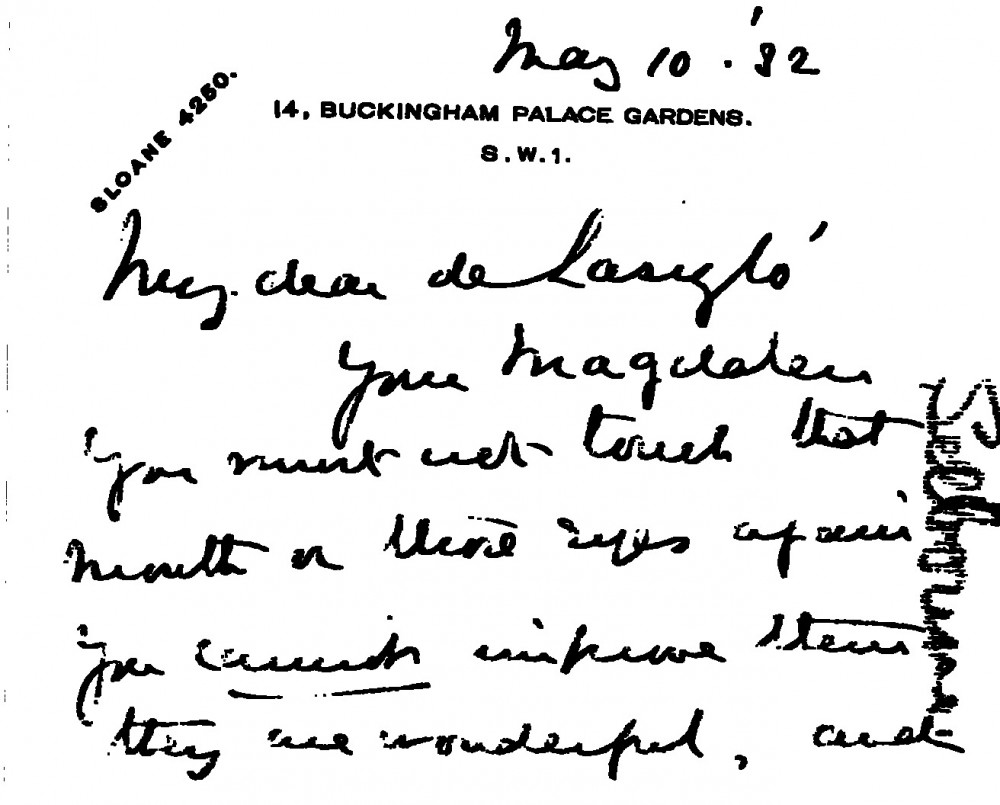 May 10 . '32
SLOANE 4250.
14, BUCKINGHAM PALACE GARDENS.
S.W.1.
My dear de László
Your Magdalen
You must not touch that
mouth or those eyes again
you cannot improve them
they are wonderful, and